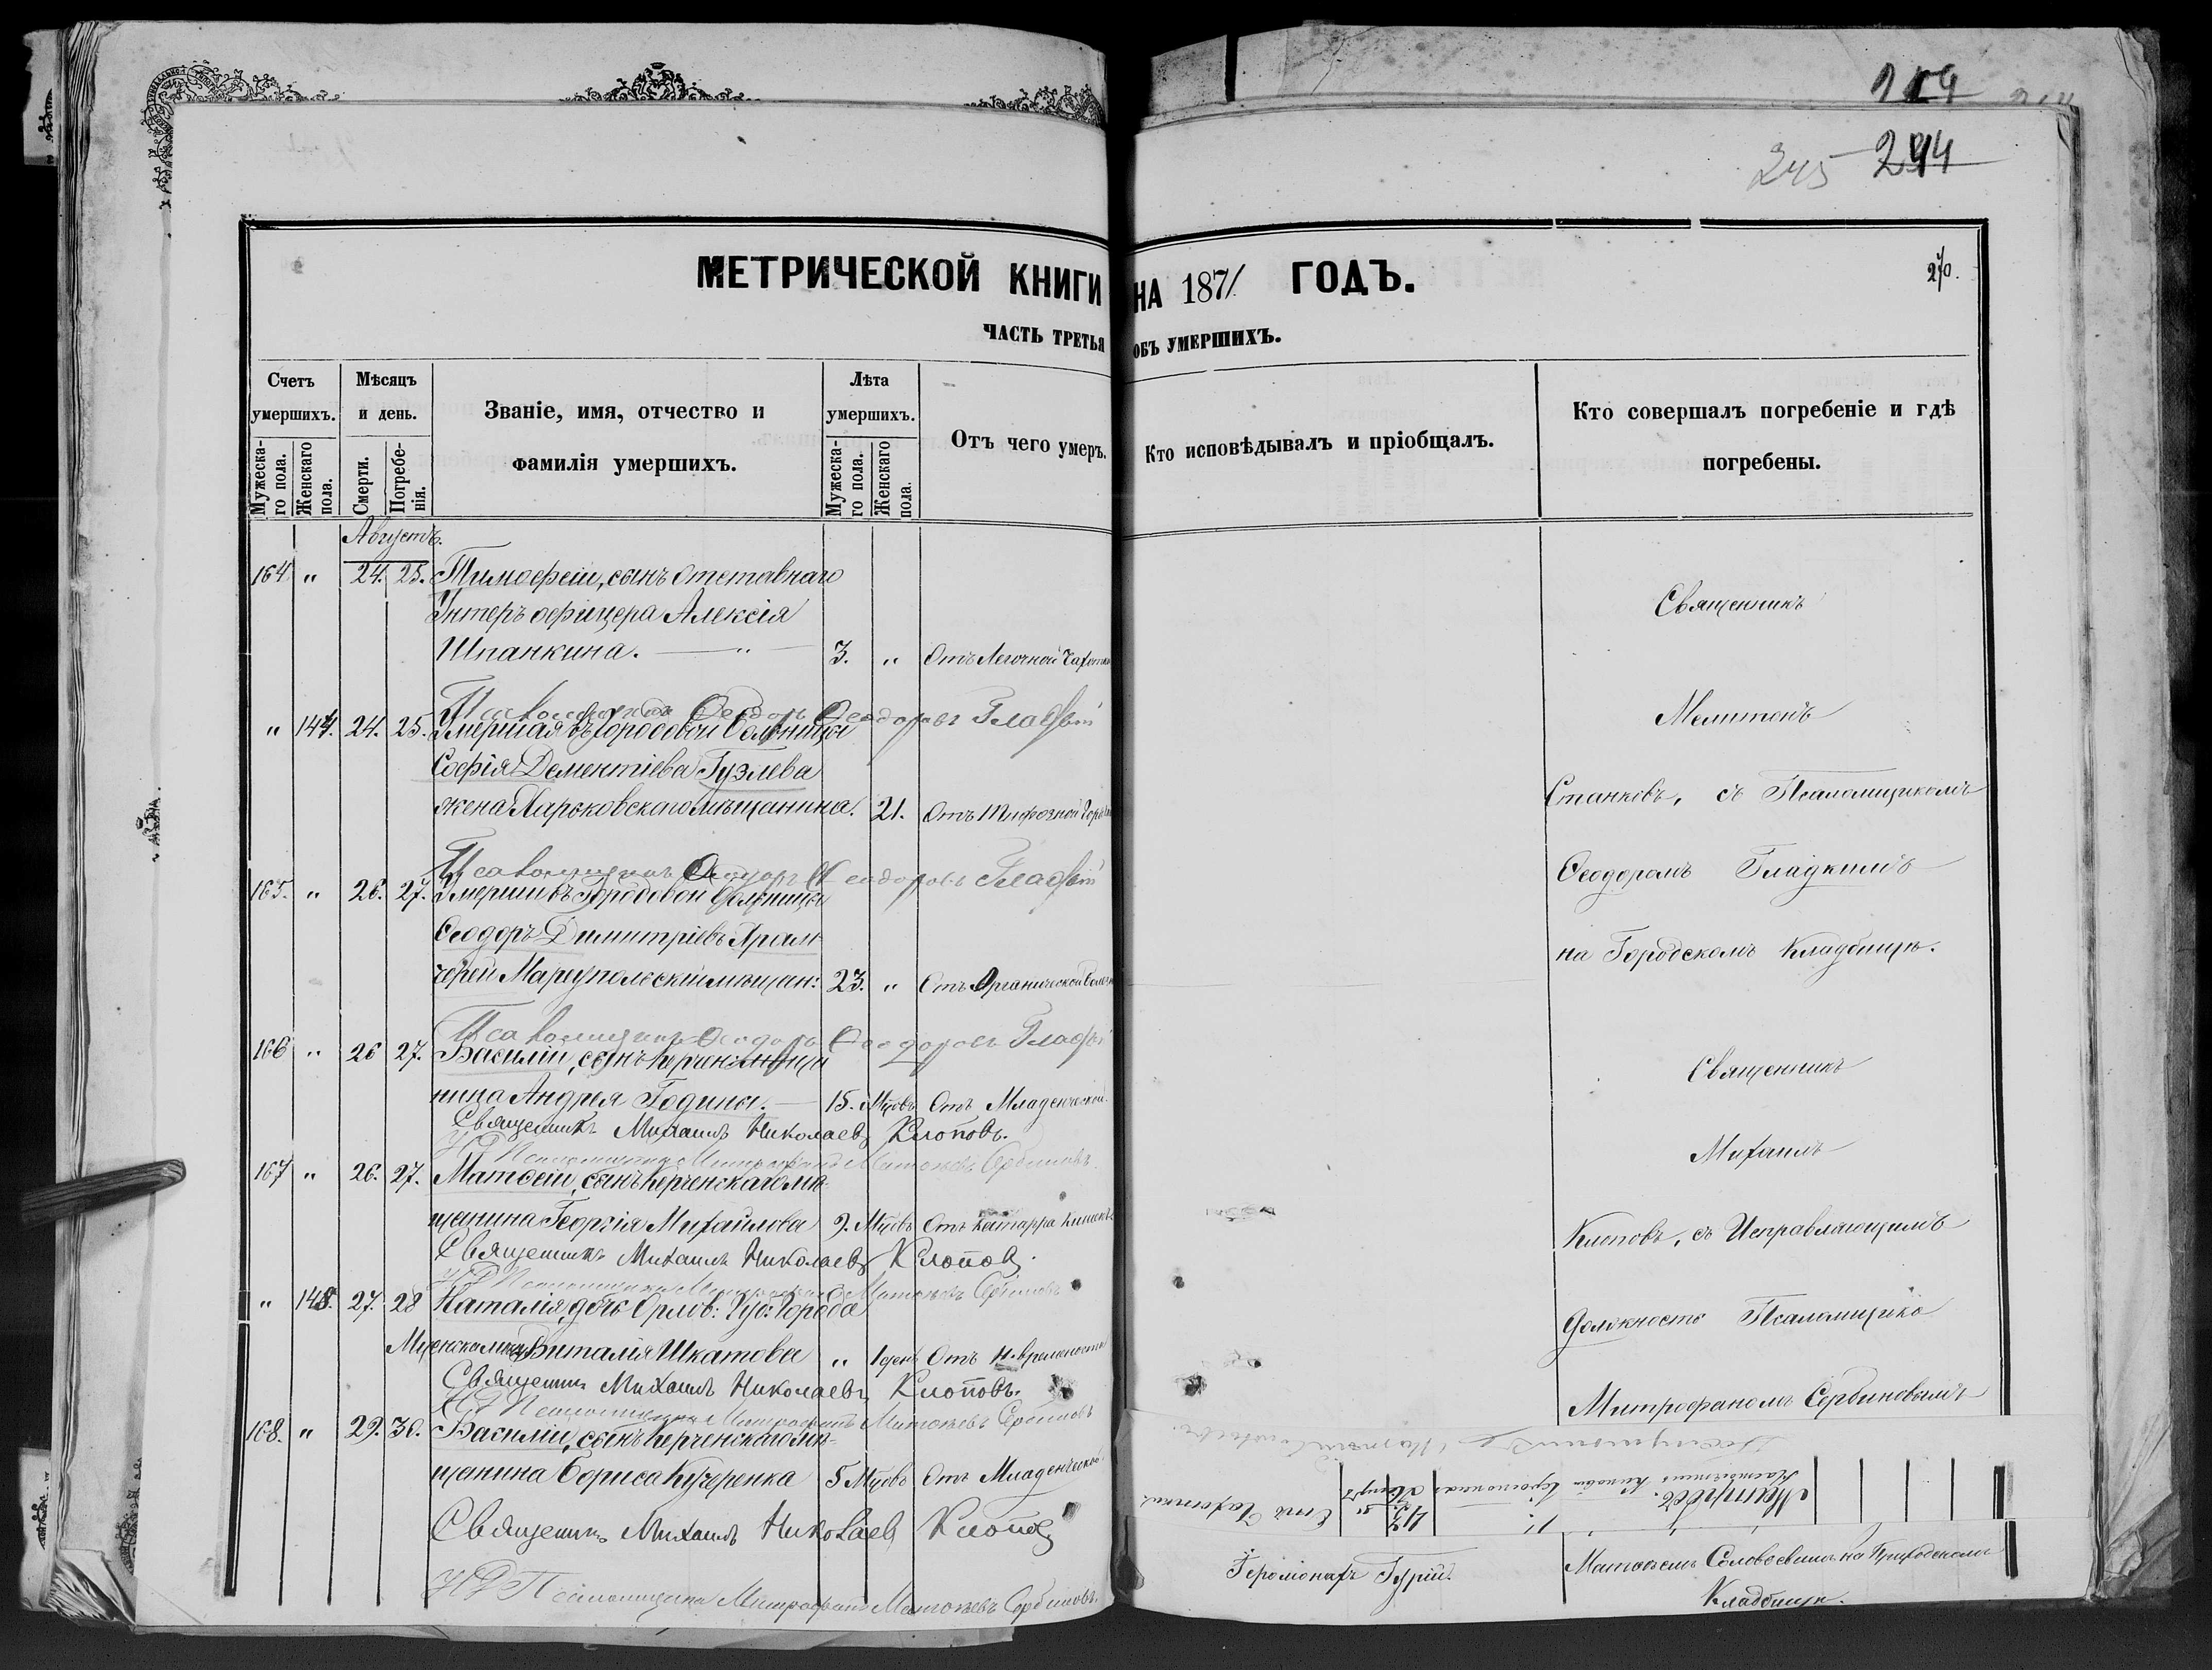 219
245 244
МЕТРИЧЕСКОЙ КНИГИ НА 1871 ГОДЪ.
270.
ЧАСТЬ ТРЕТЬЯ ОБЪ УМЕРШИХЪ.
Счетъ умершихъ.
Мужеска-го пола.
Женскаго пола.
Мѣсяцъ и день.
Смерти.
Погребе-нія.
Званіе, имя, отчество и фамилія умершихъ.
Лѣта умершихъ.
Мужеска-го пола.
Женскаго пола.
Отъ чего умеръ.
Кто исповѣдывалъ и пріобщалъ.
Кто совершалъ погребеніе и гдѣ погребены.
Августъ.
164 " 24. 25. Тимофеи, сынъ отставнаго
Унтеръ офицера Алексія
Шпанкина. — " — 3. " Отъ Легочной Чахотки
Псаломщикъ Ѳеодоръ Ѳеодоровъ Гладкій
" 147. 24. 25. Умершая въ Городовой Больницы
Софія Дементіева Гуэлева
жена Харьковскаго мѣщанина. 21. Отъ Тифозной Горячки
Псаломщикъ Ѳеодоръ Ѳеодоровъ Гладкій
165. " 26. 27. Умерши въ Городовой больницы
Ѳеодоръ Димитріевъ Храм-
черей Мареупольскій мѣщан: 23. " Отъ Органической болезн
Псаломщикъ Ѳеодоръ Ѳеодоровъ Гладкій
166 " 26 27. Василіи, сынъ
нина Андрея Година. — 15. Мцовъ Отъ Младенческой
Священникъ Михаилъ Николаевъ Клоповъ.
И Д Псаломщика Митрофанъ Матѳѣевъ Сербиновъ
167 " 26. 27. Матѳеи, сынъ Керченскаго мѣ-
щанина Георгія Михайлова 9. Мцовъ Отъ Катарра Кишекъ
Священникъ Михаилъ Николаевъ Клоповъ.
И Д Псаломщика Митрофанъ Матѳѣевъ Сербиновъ
" 148. 27. 28 Наталія, дочь Орлов: Губ: Города
Виталія Шкатова " 1 день Отъ
Священникъ Михаилъ Николаевъ Клоповъ.
И Д Псаломщика Митрофанъ Матѳѣевъ Сербиновъ
168. " 29. 30. Василіи, сынъ Керченскаго мѣ-
щанина Бориса Кучеренка 5 Мцовъ Отъ Младенческой
Священникъ Михаилъ Николаевъ Клоповъ
И Д Псаломщика Митрофанъ Матѳѣевъ Сербиновъ.
Священникъ
Мелитонъ
Станковъ, съ Псаломщикомъ
Ѳеодоромъ Гладкимъ
на Городскомъ Кладбищѣ.
Священникъ
Михаилъ
Клоповъ, съ Исправляющимъ
должность Псаломщика
Митрофаномъ Сербиновымъ
Отъ Чахотки.
Іеромонахъ Гурій.
Матѳѣемъ Соловьевымъ на Приходскомъ
Кладбищѣ.